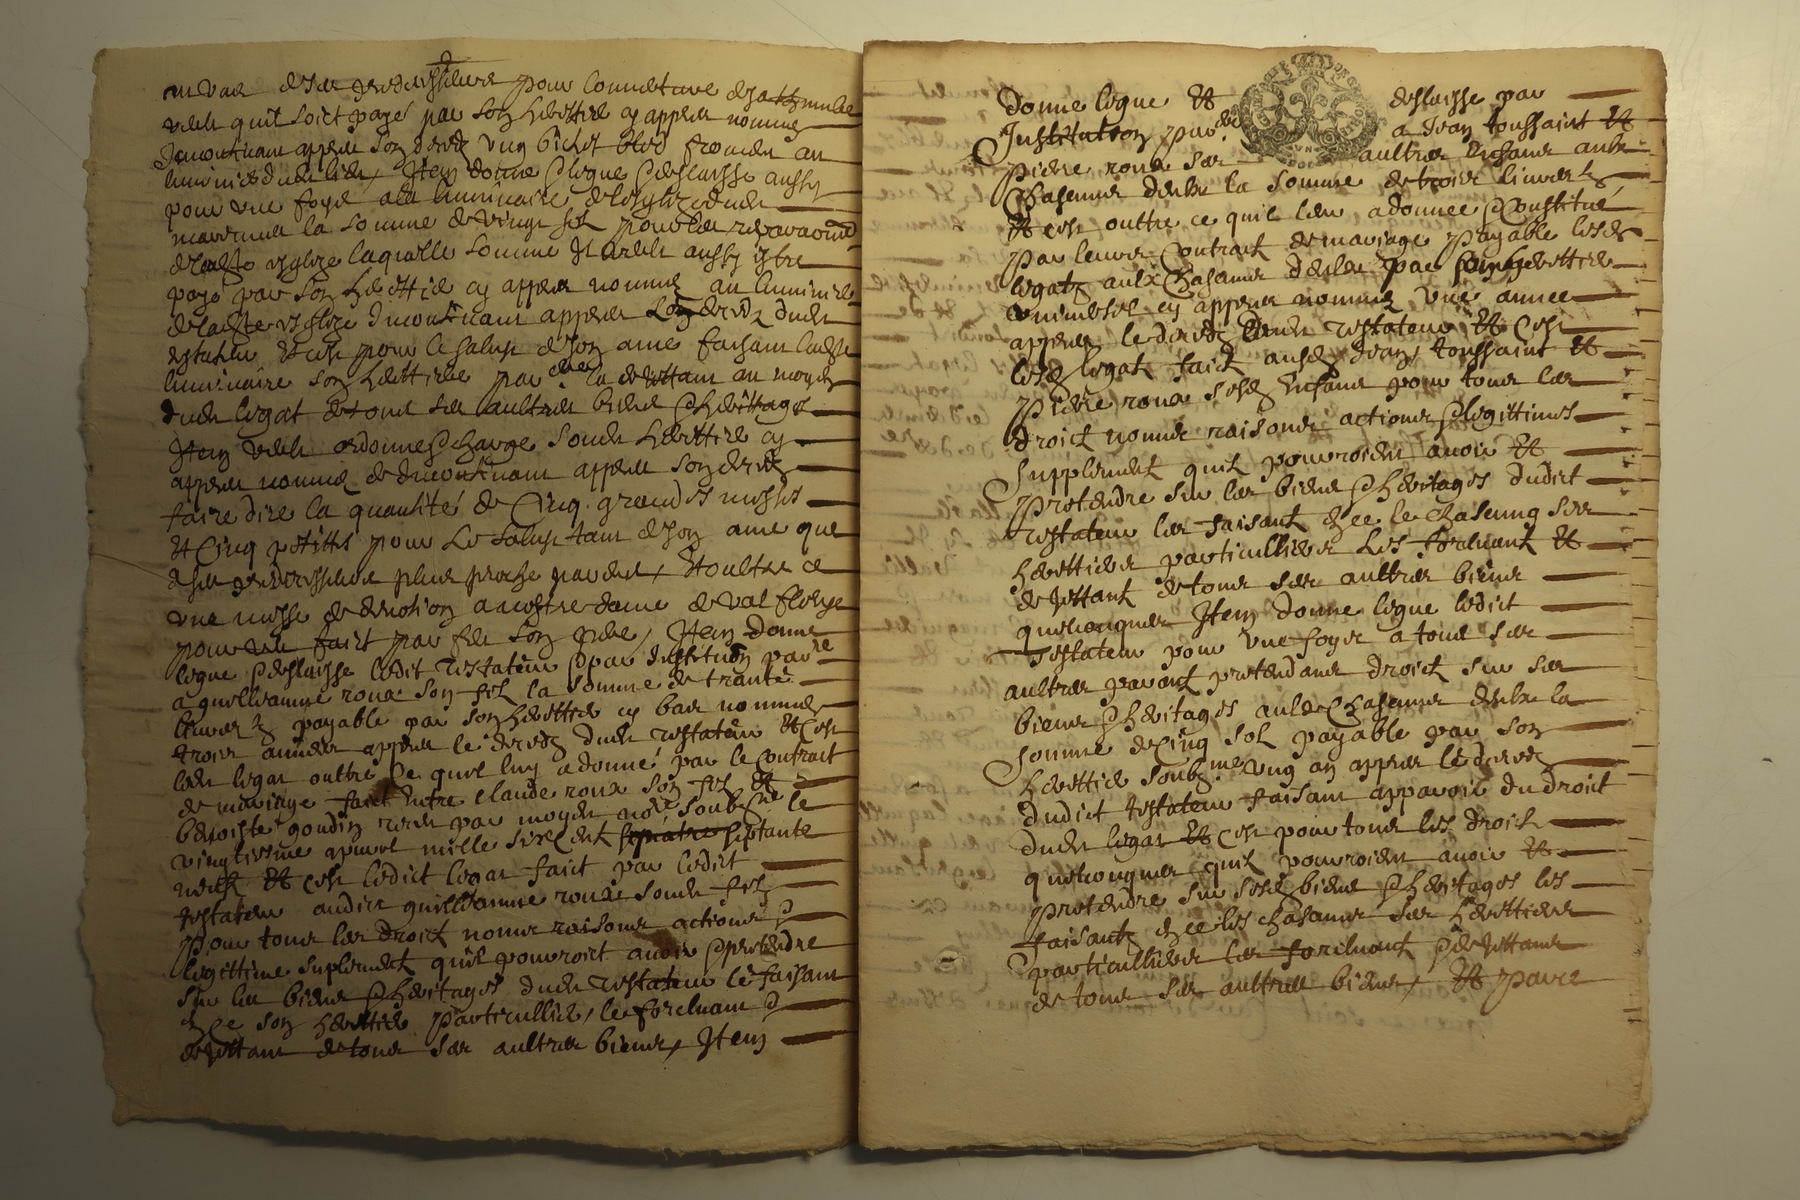 de ses predecesseurs pour
veult quil soict payé par son herettier cy appres nommé
Incontinant appres son decedz ung bichet bled froment au
Item donne legue & deslaisse aussy
pour une foys a la luminaire de lesglize dudit
la somme de vingt solz pour les reparaons
de ladte esglize laquelle somme Il veult aussy estre
payé par son herettier cy appres nommé au luminier
de ladte esglize Incontinant appres son decedz dudit
testateur Et cest pour le salust de son ame faisant ladte
luminaire son herettiere par ce la dejettant au moyen
dudit legat de tous ses aultres biens & heritages
Item veult ordonne & charge sondit herettier cy
appres nommé de Incontinant appres son decedz
faire dire la quantité de Cinq grandes messes
Et Cinq petittes pour Le salust tant de son ame que
de ses predecesseurs plus proche parents, Et oultre ce
une messe de devotion a nostre dame de val fleurye
pour veu faict par feu son pere, Item donne
legue & deslaisse ledit testateur & par Institution parre
a guilleaume roux son filz la somme de trante
livres tz payable par son herettier cy bas nommé
trois annees appres le decedz dudit testateur Et cest
ledit legat oultre Ce quil luy a donné par le Contrait
de mariage faict Entre claude roux son filz Et
benoiste goudin receu par moyen nore soubzne le
vingtiesme apvril mille six Cent septante
neufz Et cest ledict legat faict par ledict
testateur audict guilleaume roux sondit filz
Pour tous les droict noms raisons actions &
legittime suplement quil pourroict avoir & pretendre
sur les biens & heritages dudit testateur le faisant
& ce son herettier particullier, le forcluant &
dejettant de tous ses aultres biens, Item
Donne legue Et deslaisse par
Institution parre a Jean toussaint Et
pierre roux ses aultres Enfants aulx
Chascuns deulx la somme de trois livres tz
Et cest oultre ce quil leur a donnee & Constitué
Par leurs Contraict de mariage Payable lesdz
legatz aulx Chascuns deulx par son herettier
universel cy appres nommé une annee
appres le decedz dudit testateur Et Cest
lesdz legatz faict ausdz Jean, toussaint Et
Pierre roux sesdz Enfants pour tous les
droict noms raisons actions & legittimes
Supplement quilz pourroient avoir Et
Pretendre sur les biens & heritages dudict
testateur les faisant & ce le Chascung ses
herettiers particulliers Les forcluant Et
dejettant de tous ses aultres biens
quelconques Item donne legue ledict
testateur pour une foys a tous ses
aultres parent pretendans droict sur ses
biens & heritages auls Chascuns deulx la
somme de Cinq solz payable par son
herettier soubzmé ung an appres le decedz
dudict testateur faisant apparoir du droict
dudit legat Et cest pour tous les droict
quelconques quilz pourroient avoir Et
pretendre sur sesdz biens & heritages les
faisantz & ce les chascuns ses herettiers
particulliers les forcluant & dejettant
de tous ses aultres biens, Et parce